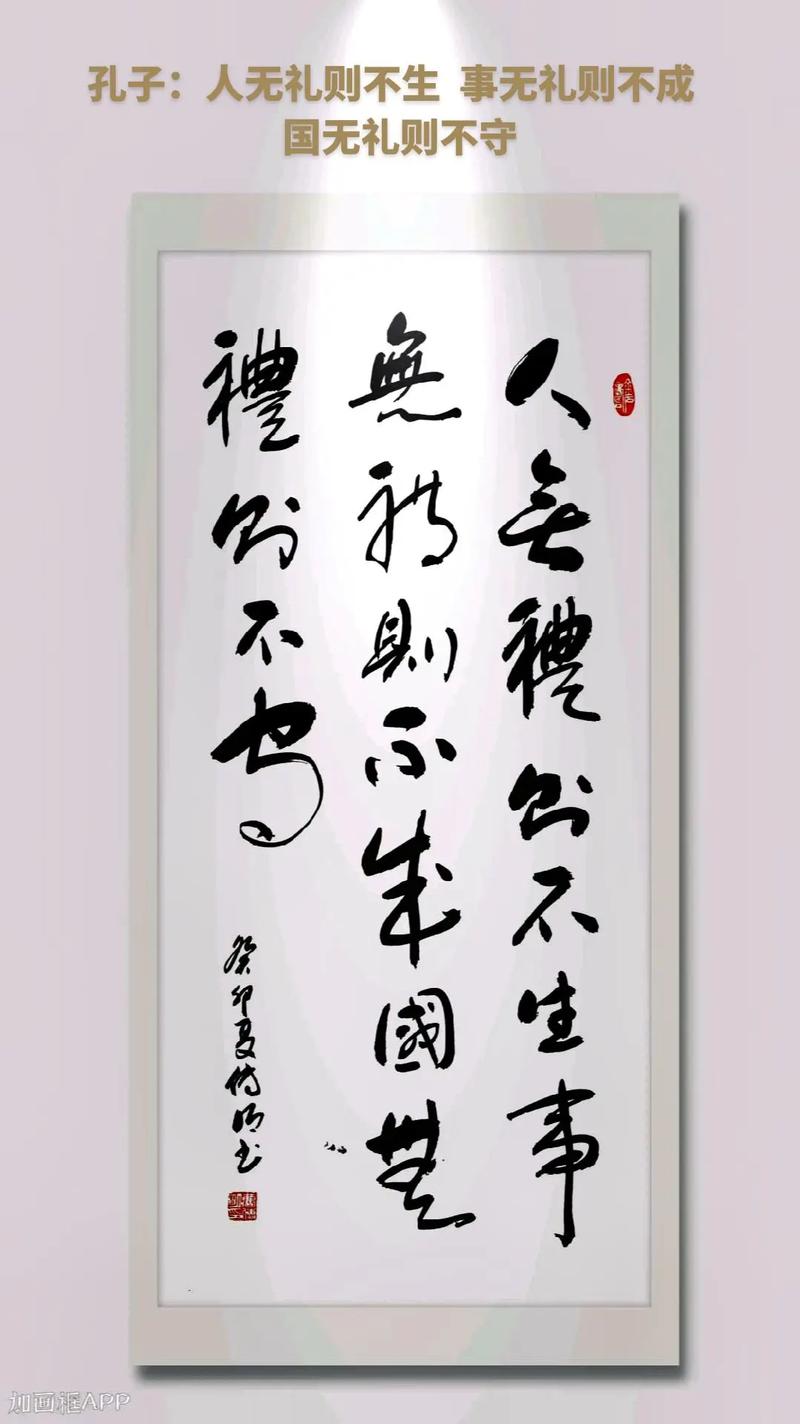 孔子：人无礼则不生 事无礼则不成
国无礼则不守
人無禮則不生事
無禮則不成國無
禮則不守
癸卯夏傳明书
加画框APP